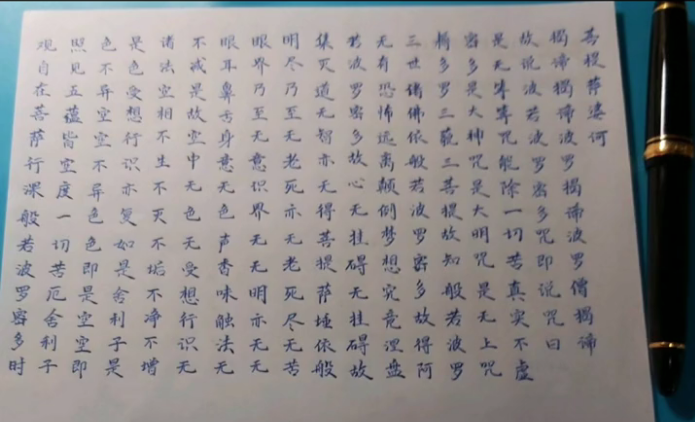 观自在菩萨行深般若波罗密多时
照见五蕴皆空度一切苦厄舍利子
色不异空空不异色色即是空空即
是色受想行识亦复如是舍利子是
诸法空相不生不灭不垢不净不增
不减是故空中无色无受想行识无
眼耳鼻舌身意无色声香味触法无
眼界乃至无意识界无无明亦无无
明尽乃至无老死亦无老死尽无苦
集灭道无智亦无得菩提萨埵依般
若波罗密多故心无挂碍无挂碍故
无有恐怖远离颠倒梦想究竟涅盘
三世诸佛依般若波罗密多故得阿
耨多罗三藐三菩提故知般若波罗
密多是大神咒是大明咒是无上咒
是无等等咒能除一切苦真实不虚
故说般若波罗密多咒即说咒曰
揭谛揭谛波罗揭谛波罗僧揭谛
菩提萨婆诃